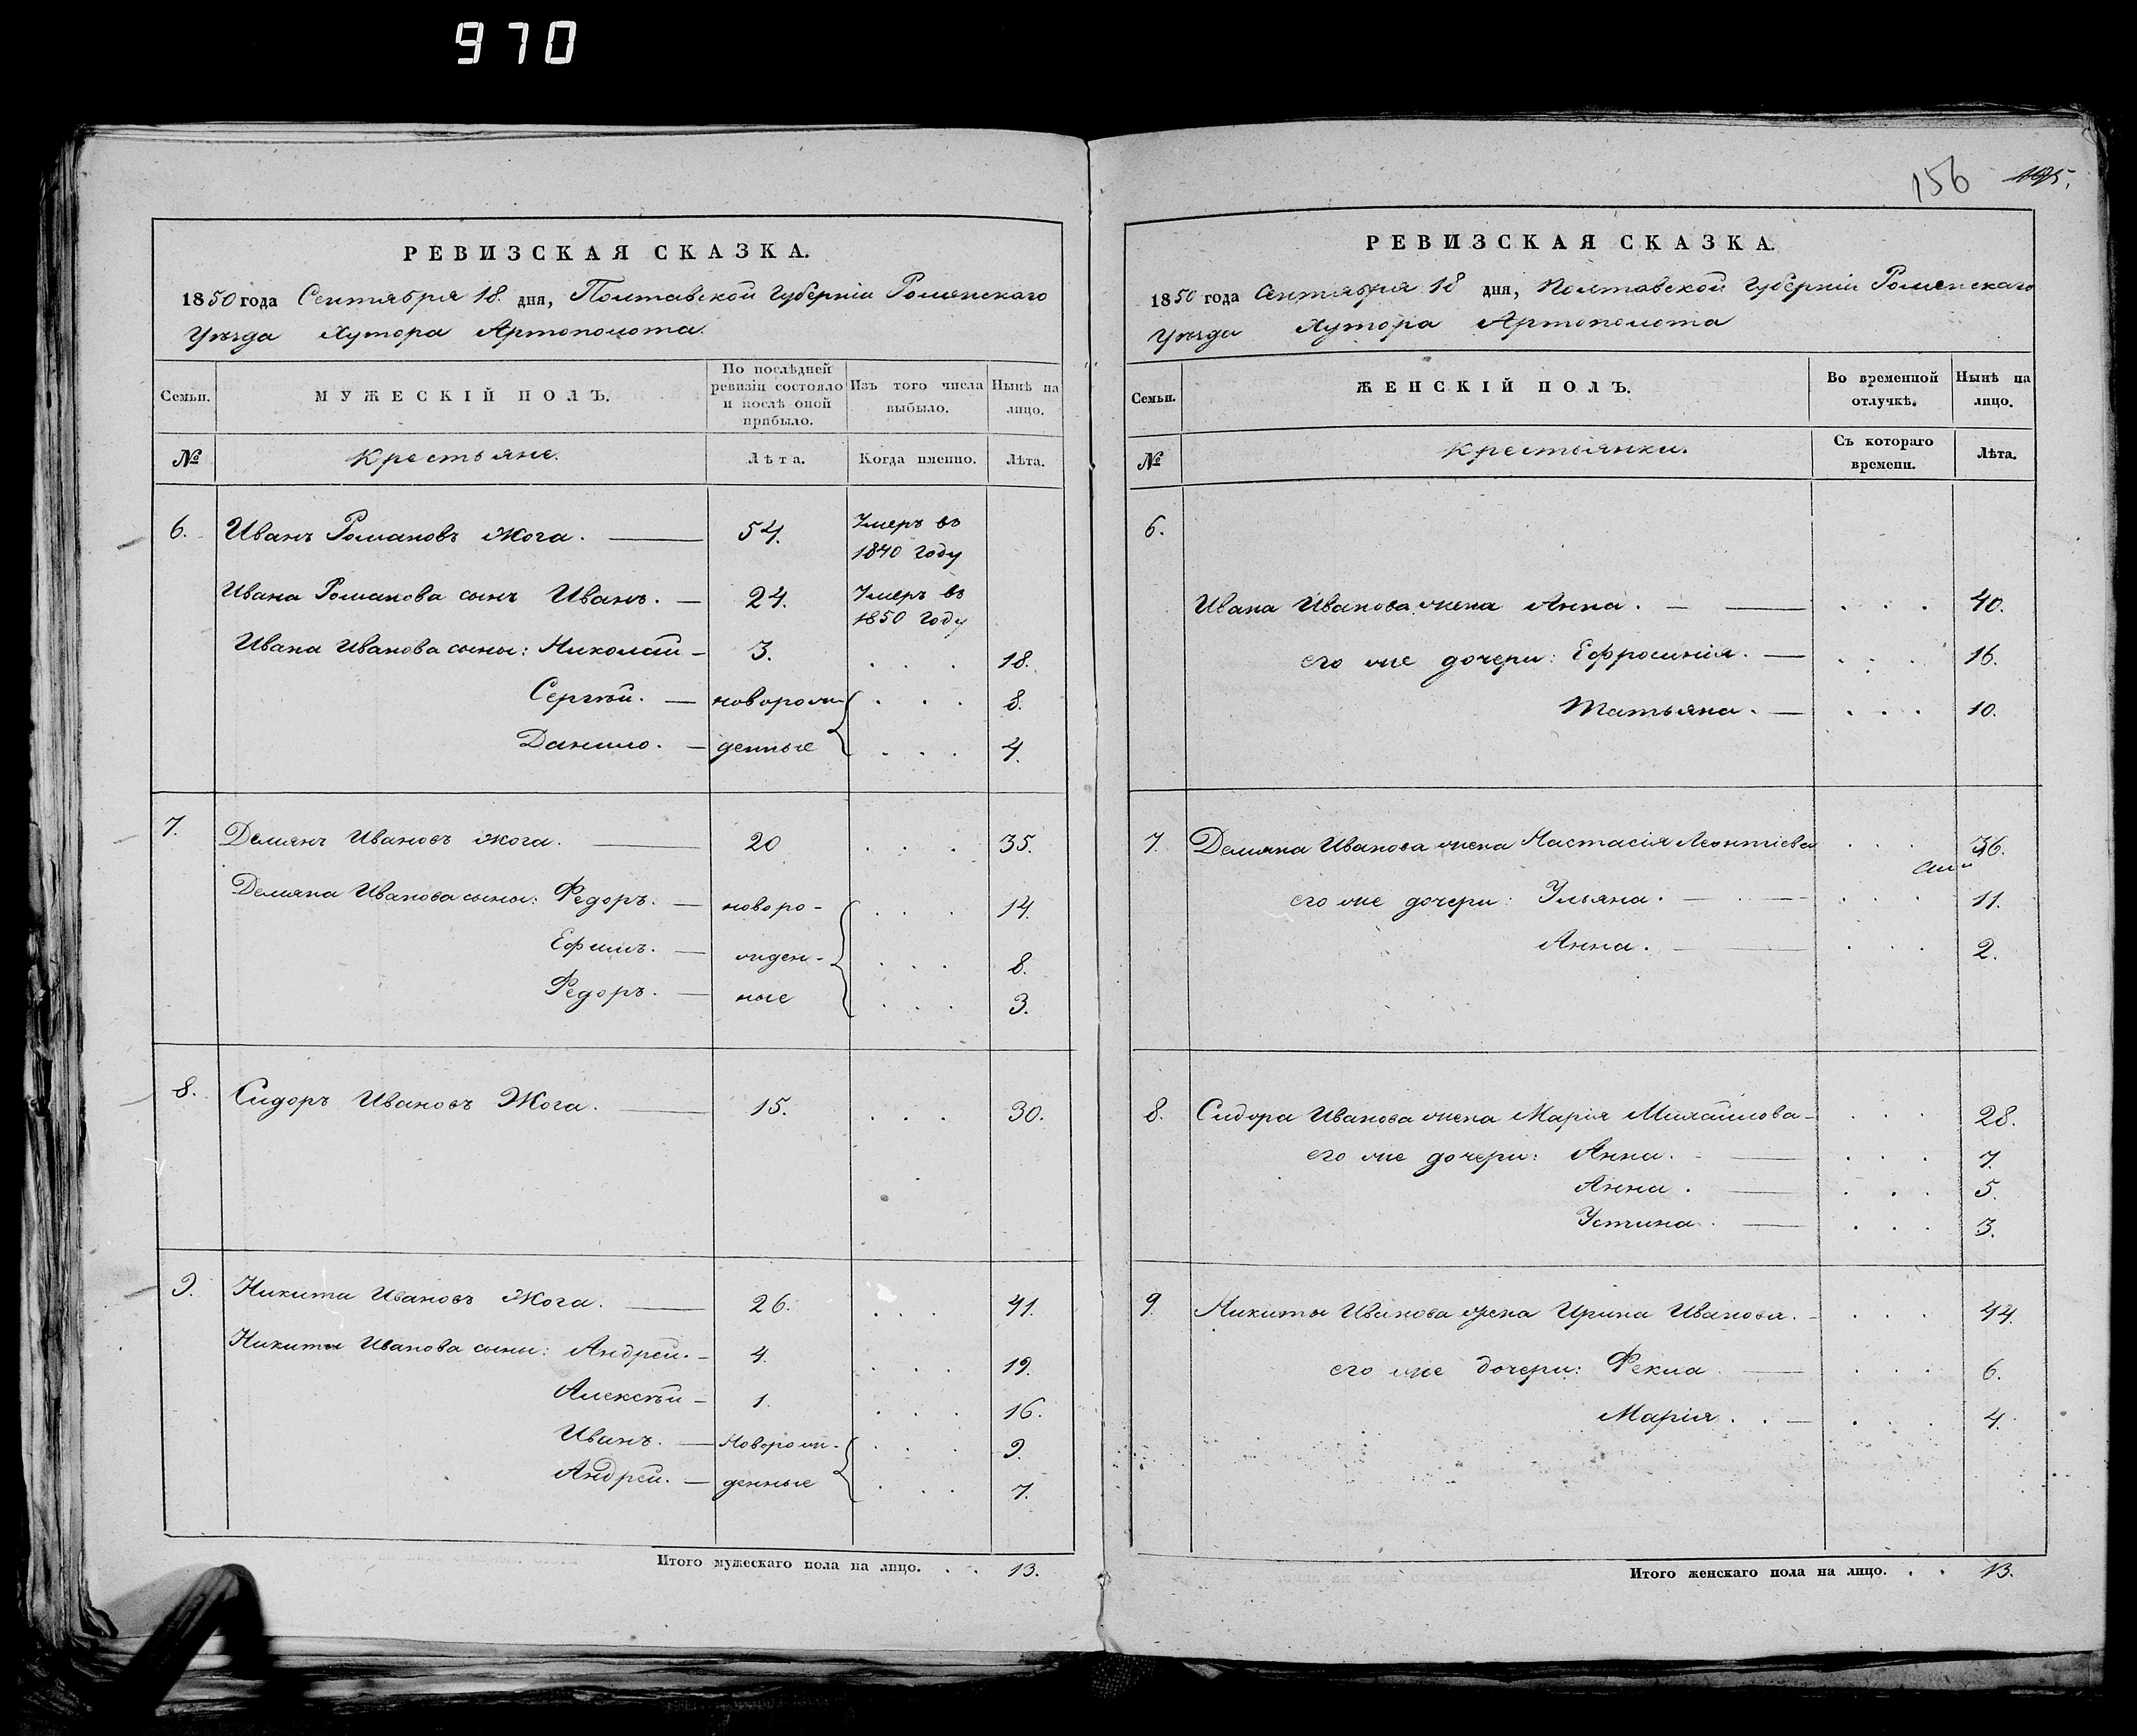 970
РЕВИЗСКАЯ СКАЗКА.
1850 года Сентября 18. дня, Полтавской Губерніи Роменскаго
Уѣзда Хутора Артополота.
Семьи. МУЖЕСКІЙ ПОЛЪ. По послѣдней ревизіи состояло и послѣ оной прибыло. Изъ того числа выбыло. Нынѣ на лицо.
№ Крестьяне. Лѣта. Когда именно. Лѣта.
6. Иванъ Романовъ Жога. — 54. Умеръ въ 1840 году
Ивана Романова сынъ Иванъ. — 24. Умеръ въ 1850 году
Ивана Иванова сыны: Николай — 3. . . . 18.
Сергѣй. — новорож- . . . 8.
Данило. — денные . . . 4.
7. Демянъ Ивановъ Жога. — 20 . . . 35.
Демяна Иванова сыны: Федоръ. — новоро- . . . 14.
Ефимъ. — жден- . . . 8.
Федоръ. — ные . . . 3.
8. Сидоръ Ивановъ Жога. — 15. . . . 30.
9. Никита Ивановъ Жога. — 26. . . . 41.
Никиты Иванова сыны: Андрей. — 4. . . . 19.
Алексѣй — 1. . . . 16.
Иванъ. — новорож- . . . 9.
Андрей. — денные . . . 7.
Итого мужескаго пола на лицо. . . 13.
156
РЕВИЗСКАЯ СКАЗКА.
1850 года Сентября 18 дня, Полтавской Губерніи Роменскаго
Уѣзда Хутора Артополота
Семьи. ЖЕНСКІЙ ПОЛЪ. Во временной отлучкѣ. Нынѣ на лицо.
№ Крестьянки. Съ котораго времени. Лѣта.
6.
Ивана Иванова жена Анна. — . . . 40.
его же дочери: Ефросинія. — . . . 16.
Татьяна. — . . . 10.
7. Демяна Иванова жена Настасія Леонтіева . . . 36.
его же дочери: Ульяна. — . . . 11.
Анна. — . . . 2.
8. Сидора Иванова жена Марія Михайлова — . . . 28.
его же дочери: Анна. — . . . 7.
Анна. — . . . 5.
Устина. — . . . 3.
9. Никиты Иванова жена Ирина Иванова. — . . . 44.
его же дочери: Фекла — . . . 6.
Марія. — . . . 4.
Итого женскаго пола на лицо. . . 13.